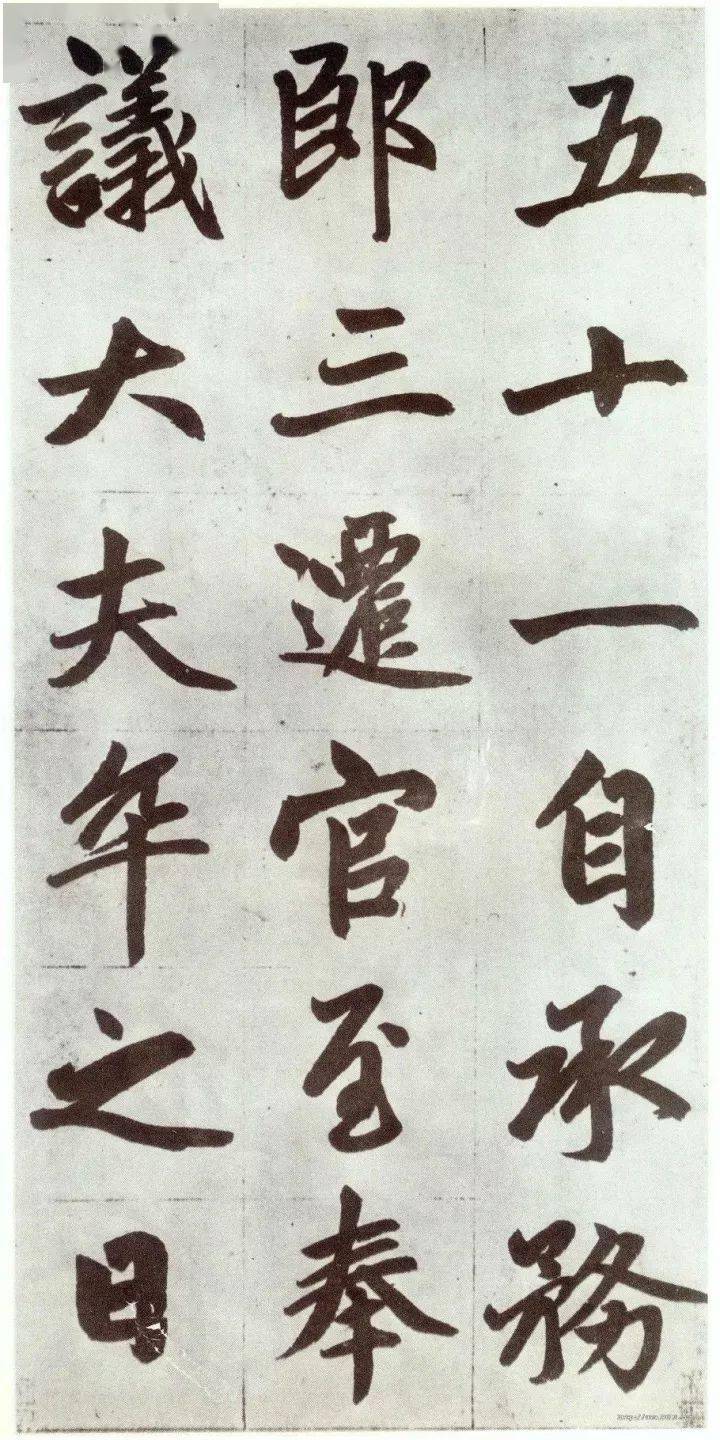 五十一自承務
郎三遷官至奉
議大夫卒之日